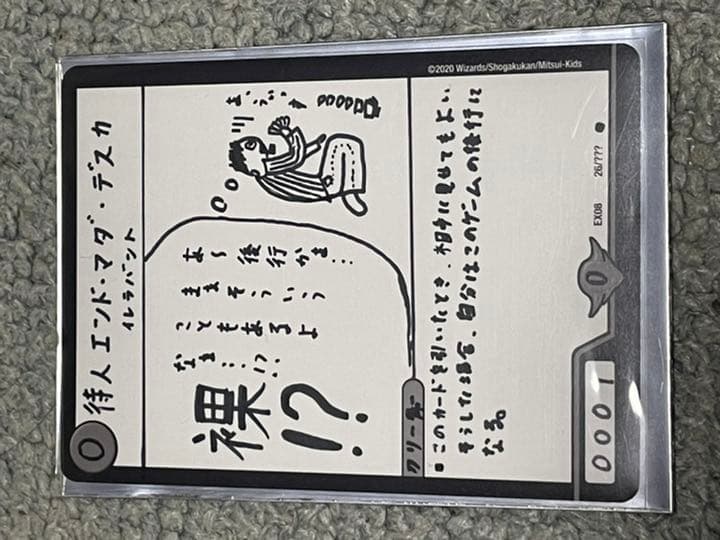 0
待人エンド・マダ・デスカ
イレラバント
まぶ
あ〜後行かぁ…
ままそういう
こともあるよ
なぁ…!?
裸!?
クリーチャー
■このカードを引いたとき、相手に見せてもよい。
そうした場合、自分はこのゲームの後行に
なる。
0001
0
EX08 26/???
©2020 Wizards/Shogakukan/Mitsui-Kids